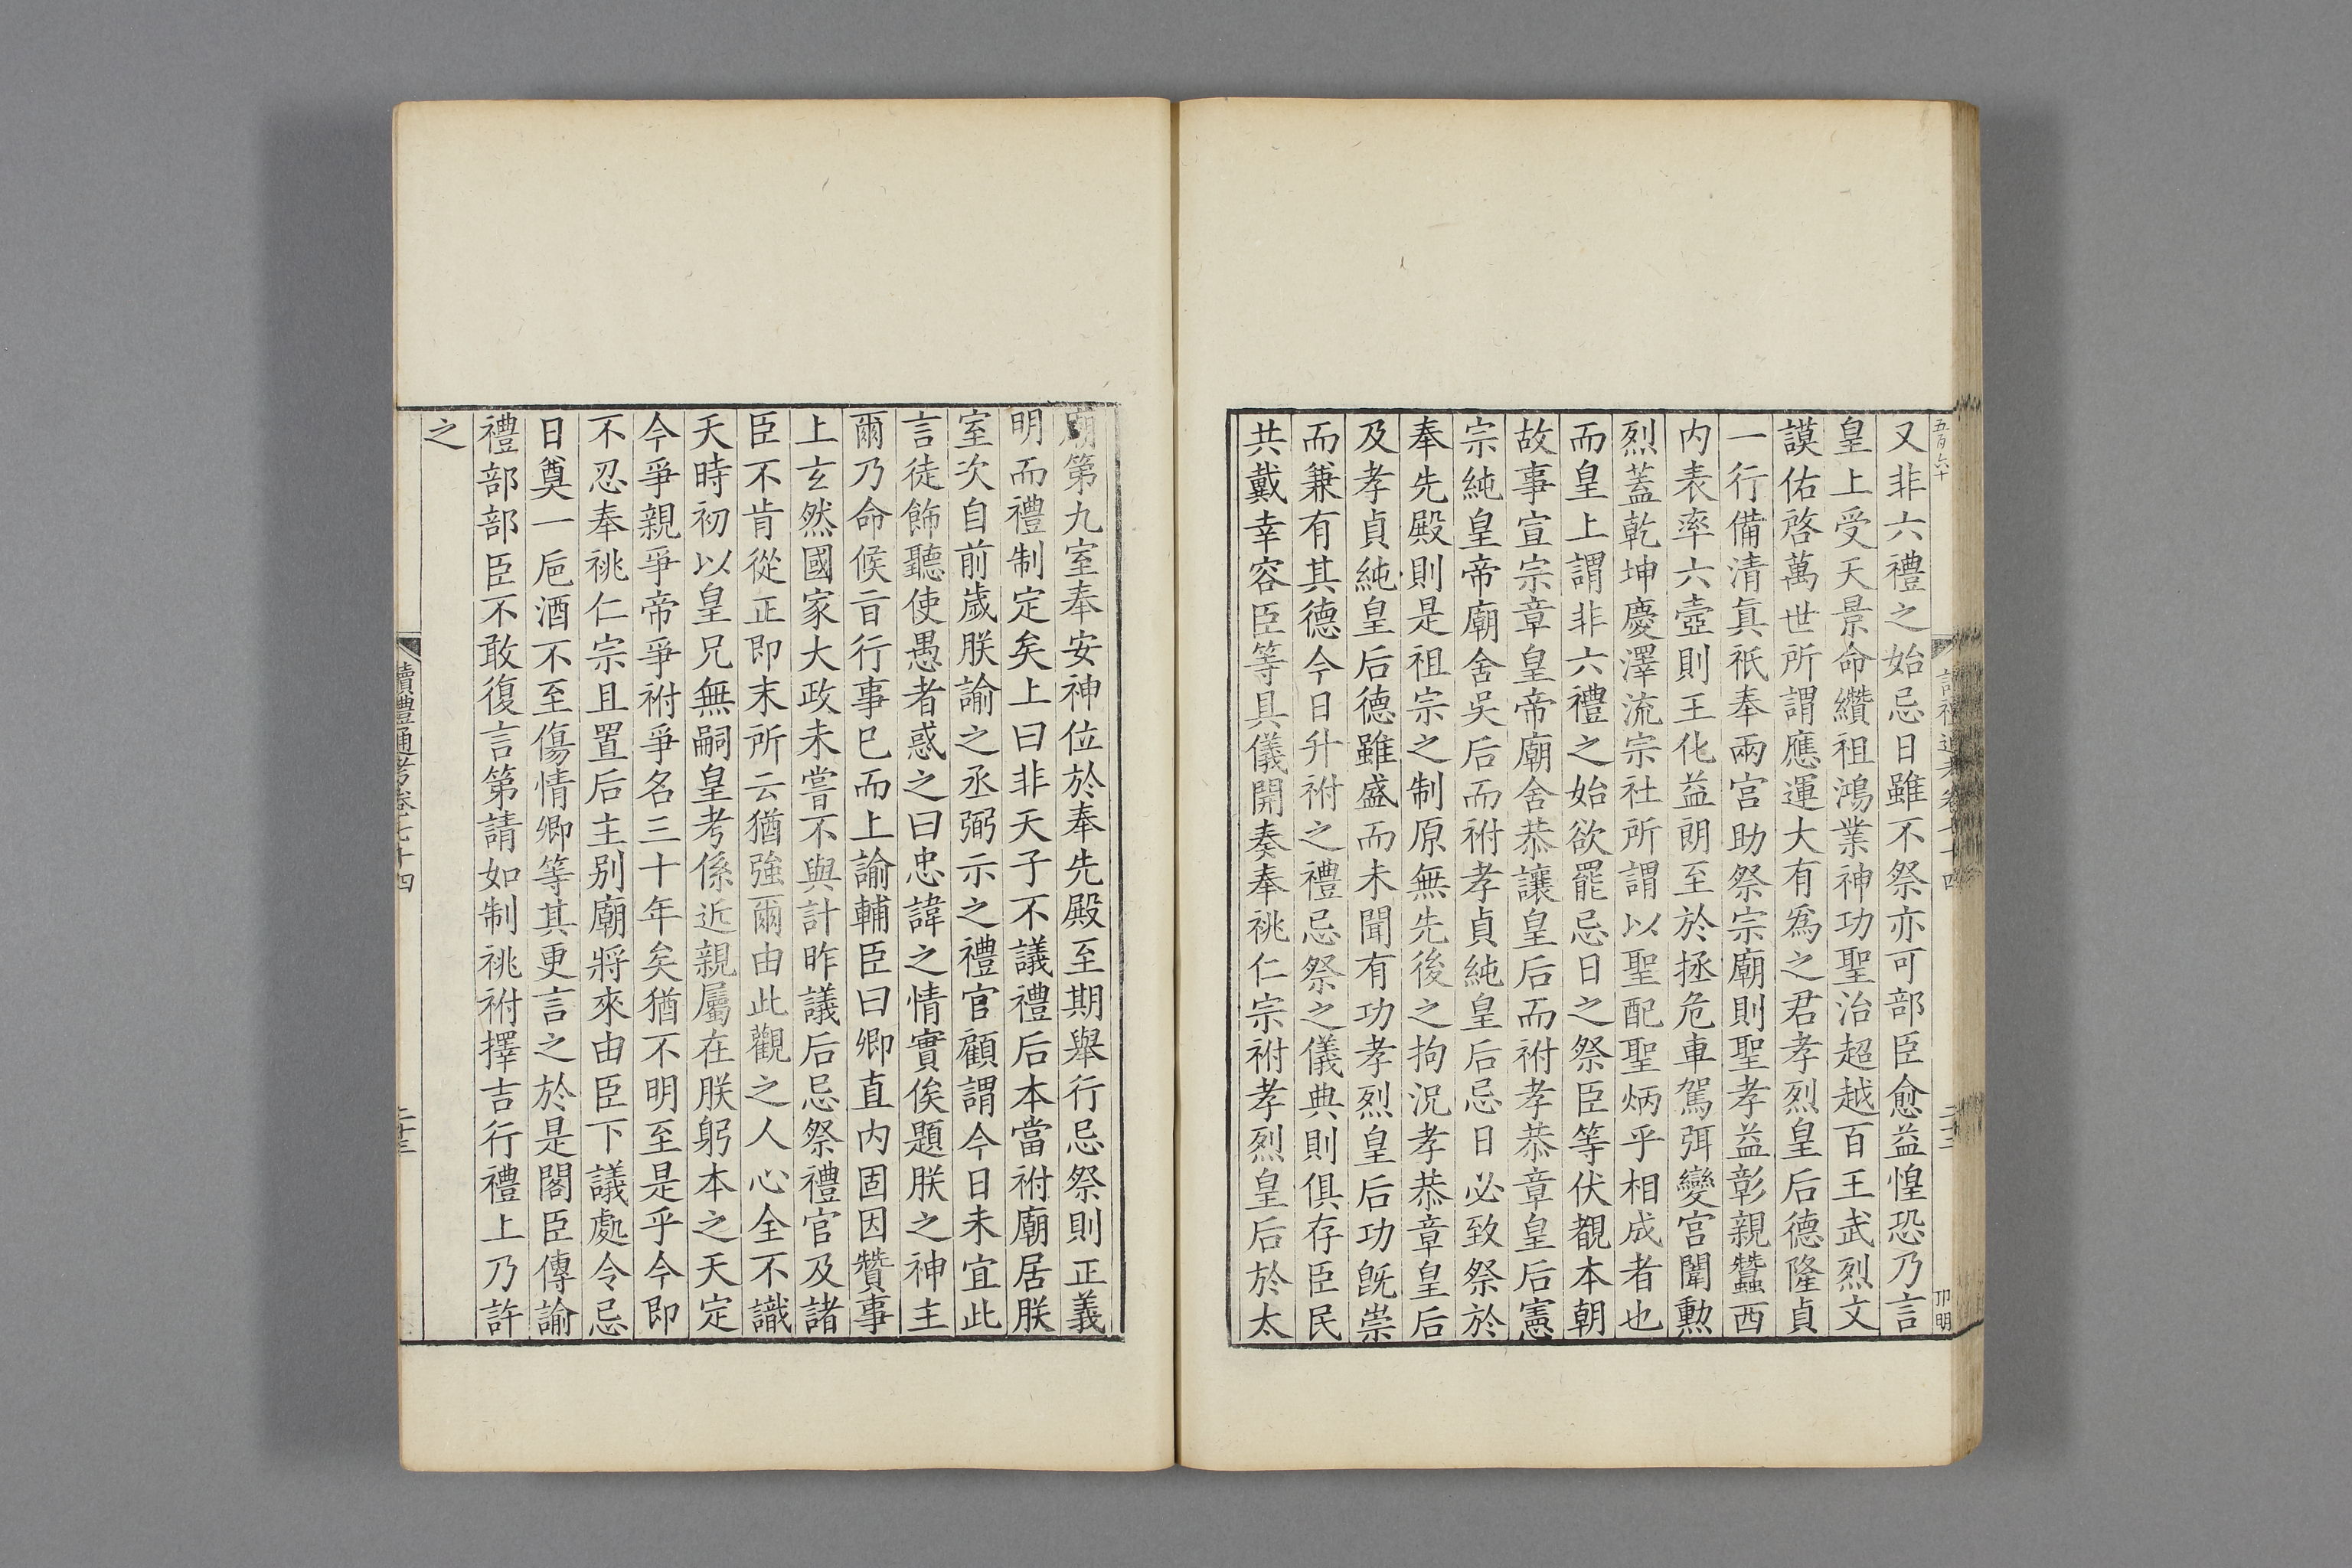 五百六十
又非六禮之始忌日雖不祭亦可部臣愈益惶恐乃言
皇上受天景命纘祖鴻業神功聖治超越百王武烈文
謨佑啓萬世所謂應運大有爲之君孝烈皇后德隆貞
一行備清眞祇奉兩宮助祭宗廟則聖孝益彰親蠶西
内表率六壼則王化益朗至於拯危車駕弭變宮闈勲
烈蓋乾坤慶澤流宗社所謂以聖配聖炳乎相成者也
而皇上謂非六禮之始欲罷忌日之祭臣等伏覩本朝
故事宣宗章皇帝廟舍恭讓皇后而祔孝恭章皇后憲
宗純皇帝廟舍吳后而祔孝貞純皇后忌日必致祭於
奉先殿則是祖宗之制原無先後之拘況孝恭章皇后
及孝貞純皇后德雖盛而未聞有功孝烈皇后功旣崇
而兼有其德今日升祔之禮忌祭之儀典則俱存臣民
共戴幸容臣等具儀開奏奉祧仁宗祔孝烈皇后於太
廟第九室奉安神位於奉先殿至期舉行忌祭則正義
明而禮制定矣上曰非天子不議禮后本當祔廟居朕
室次自前歲朕諭之丞弼示之禮官顧謂今日未宜此
言徒飾聽使愚者惑之曰忠諱之情實俟題朕之神主
爾乃命候㫖行事巳而上諭輔臣曰卿直内固因贊事
上玄然國家大政未嘗不與計昨議后忌祭禮官及諸
臣不肯從正即末所云猶強爾由此觀之人心全不識
天時初以皇兄無嗣皇考係近親屬在朕躬本之天定
今爭親爭帝爭祔爭名三十年矣猶不明至是乎今即
不忍奉祧仁宗且置后主别廟將來由臣下議處令忌
日奠一巵酒不至傷情卿等其更言之於是閣臣傳諭
禮部部臣不敢復言第請如制祧祔擇吉行禮上乃許
之
讀禮通考卷七十四
二十三